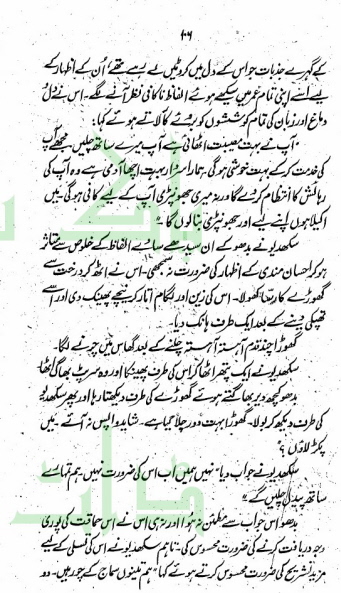 ۱۰۶
کے گہرے جذبات جو اس کے دل میں کروٹیں لے رہے تھے، اُن کے اظہار کے
لیے اسے اپنی تمام عمر میں سیکھے ہوئے الفاظ ناکافی نظر آنے لگے۔ اس نے دل و
دماغ اور زبان کی تمام کوششوں کو بروئے کار لاتے ہوئے کہا:
"آپ نے بہت مصیبت اٹھائی ہے آپ میرے ساتھ چلیں۔ مجھے آپ
کی خدمت کر کے بہت خوشی ہو گی۔ ہمارا سردار بہت اچھا آدمی ہے وہ آپ کی
رہائش کا انتظام کر دے گا ورنہ میری جھونپڑی آپ کے لیے کافی ہو گی۔ میں
اکیلا ہوں اپنے لیے اور جھونپڑی بنا لوں گا۔"
سکھدیو نے بدھو کے ان سیدھے سادے الفاظ کے خلوص سے متاثر
ہو کر احسان مندی کے اظہار کی ضرورت نہ سمجھی۔ اس نے اٹھ کر درخت سے
گھوڑے کا رسّا کھولا۔ اس کی زین اور لگام اتار کر نیچے پھینک دی اور اسے
تھپکی دینے کے بعد ایک طرف ہانک دیا۔
گھوڑا چند قدم آہستہ آہستہ چلنے کے بعد گھاس میں چرنے لگا۔
سکھدیو نے ایک پتھر اٹھا کر اس کی طرف پھینکا اور وہ سرپٹ بھاگ اٹھا۔
بدھو کچھ دیر بھاگتے ہوئے گھوڑے کی طرف دیکھتا رہا اور پھر سکھدیو
کی طرف دیکھ کر بولا۔ گھوڑا بہت دور چلا گیا ہے۔ شاید واپس نہ آئے۔ میں
پکڑ لاؤں؟"
سکھدیو نے جواب دیا "نہیں ہمیں اب اس کی ضرورت نہیں۔ ہم تمہارے
ساتھ پیدل چلیں گے۔"
بدھو اس جواب سے مطمئن نہ ہوا اور نہ ہی اس نے اس حماقت کی پوری
وجہ دریافت کرنے کی ضرورت محسوس کی۔ تاہم سکھدیو نے اس کی تسلی کے لیے
مزید تشریح کی ضرورت محسوس کرتے ہوئے کہا "ہم تینوں سماج کے چور ہیں۔ دو